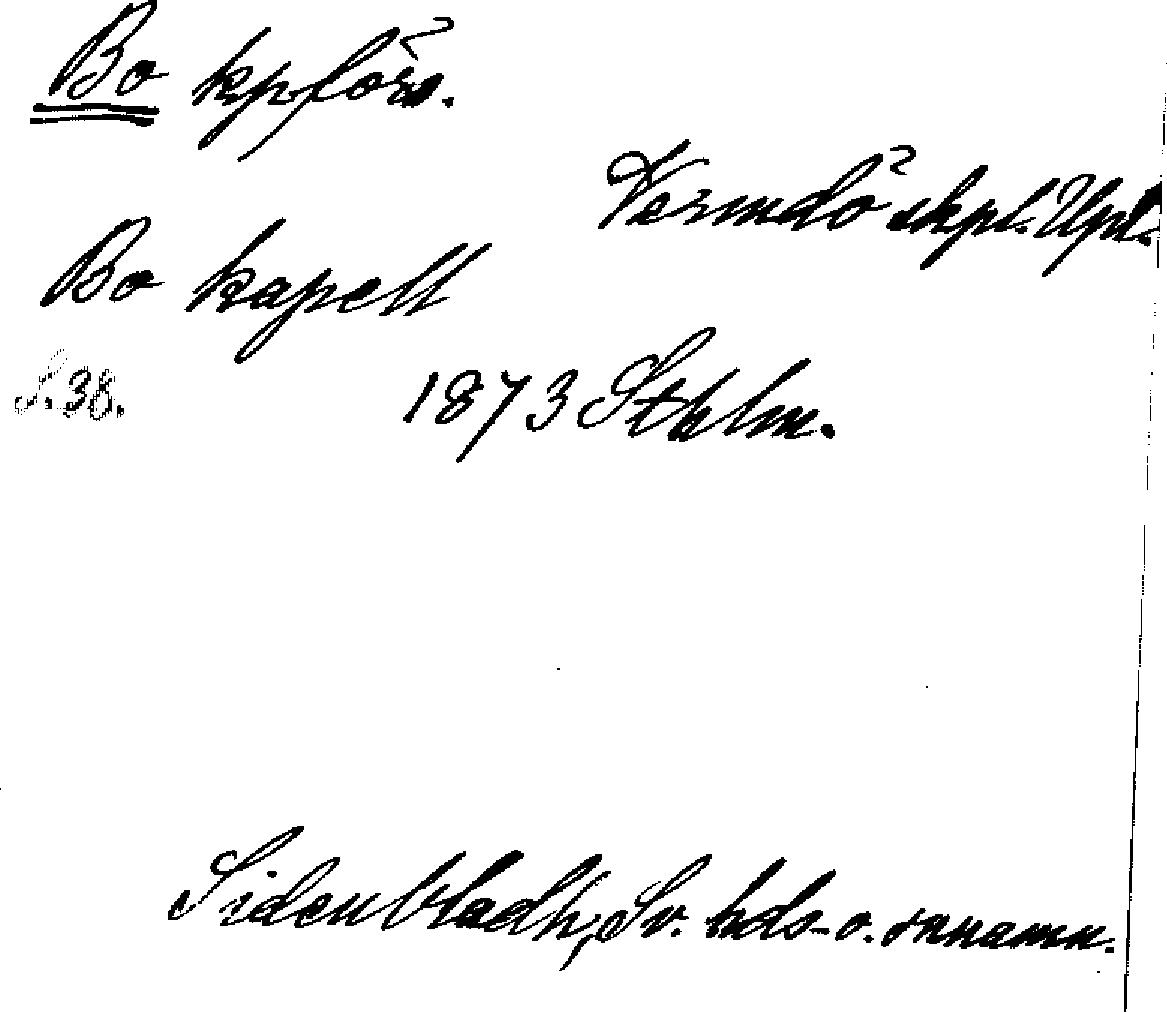 Bo kpförs.
Värmdö skpl. Upl.
Bo kapell
S. 38. 1873 Sthlm.
Sidenbladh, Sv. hds- o. snnamn.